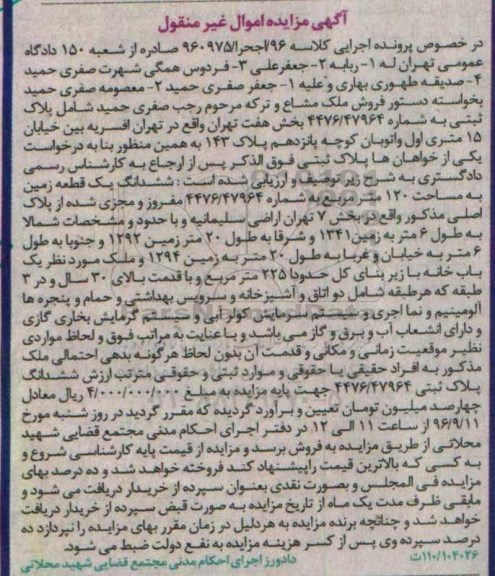 آگهی مزایده اموال غیر منقول
در خصوص پرونده اجرایی کلاسه ۹۶/اجحرا/۹۶۰۹۷۵ صادره از شعبه ۱۵۰ دادگاه
عمومی تهران له ۱- ربابه ۲- جعفرعلی ۳- فردوس همگی شهرت صفری حمید
۴- صدیقه طهوری بهاری و علیه ۱- جعفر صفری حمید ۲- معصومه صفری حمید
بخواسته دستور فروش ملک مشاع و ترکه مرحوم رجب صفری حمید شامل پلاک
ثبتی به شماره ۴۴۷۶/۴۷۹۶۴ بخش هفت تهران واقع در تهران افسریه بین خیابان
۱۵ متری اول واتوبان کوچه پانزدهم پلاک ۱۴۳ به همین منظور بنا به درخواست
یکی از خواهان ها پلاک ثبتی فوق الذکر پس از ارجاع به کارشناس رسمی
دادگستری به شرح زیر توصیف و ارزیابی شده است : ششدانگ یک قطعه زمین
به مساحت ۱۲۰ متر مربع به شماره ۴۴۷۶/۴۷۹۶۴ مفروز و مجزی شده از پلاک
اصلی مذکور واقع در بخش ۷ تهران اراضی سلیمانیه و با حدود و مشخصات شمالا
به طول ۶ متر به زمین ۱۳۴۱ و شرقا به طول ۲۰ متر زمین ۱۲۹۲ و جنوبا به طول
۶ متر به خیابان و غربا به طول ۲۰ متر به زمین ۱۲۹۴ و ملک مورد نظر یک
باب خانه با زیر بنای کل حدودا ۲۲۵ متر مربع و با قدمت بالای ۳۰ سال و در ۳
طبقه که هر طبقه شامل دو اتاق و آشپزخانه و سرویس بهداشتی و حمام و پنجره ها
آلومینیم و نما آجری و سیستم سرمایش کولر آبی و سیستم گرمایش بخاری گازی
و دارای انشعاب آب و برق و گاز می باشد و با عنایت به مراتب فوق و لحاظ مواردی
نظیر موقعیت زمانی و مکانی و قدمت آن بدون لحاظ هرگونه بدهی احتمالی ملک
مذکور به افراد حقیقی یا حقوقی و موارد ثبتی و حقوقی مترتب ارزش ششدانگ
پلاک ثبتی ۴۴۷۶/۴۷۹۶۴ جهت پایه مزایده به مبلغ ۴/۰۰۰/۰۰۰/۰۰۰ ریال معادل
چهارصد میلیون تومان تعیین و برآورد گردیده که مقرر گردید در روز شنبه مورخ
۹۶/۹/۱۱ از ساعت ۱۱ الی ۱۲ در دفتر اجرای احکام مدنی مجتمع قضایی شهید
محلاتی از طریق مزایده به فروش برسد و مزایده از قیمت پایه کارشناسی شروع و
به کسی که بالاترین قیمت را پیشنهاد کند فروخته خواهد شد و ده درصد بهای
مزایده فی المجلس و بصورت نقدی بعنوان سپرده از خریدار دریافت می شود و
مابقی ظرف مدت یک ماه از تاریخ مزایده به صورت قبض سپرده از خریدار دریافت
خواهد شد و چنانچه برنده مزایده به هر دلیل در زمان مقرر بهای مزایده را نپردازد ده
درصد سپرده وی پس از کسر هزینه مزایده به نفع دولت ضبط می شود.
۱۱۰/۱۰۴۰۲۶/ت دادورز اجرای احکام مدنی مجتمع قضایی شهید محلاتی